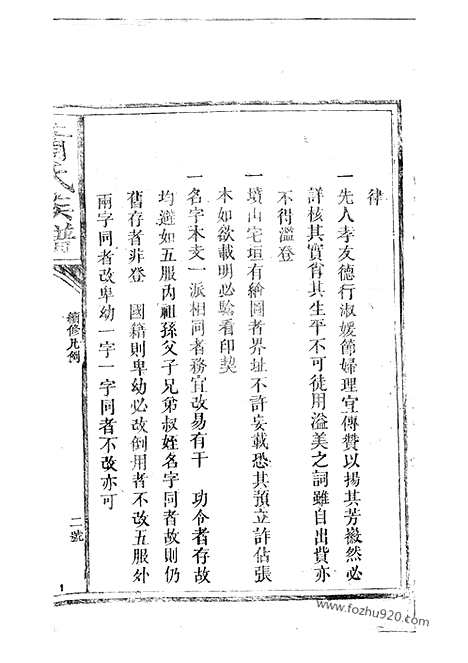 律
一先人孝友德行淑媛節婦理宜傳贊以揚其芳徽然必
詳核其實肯其生平不可徒用溢美之詞雖自出費亦
不得濫登
一墳山宅垣有繪圖者界址不許妄載恐其預立詐佔張
本如欲載明必驗看印契
一名字本支一派相同者務宜改易有干　功令者存故
均避如五服內祖孫父子兄弟叔姪名字同者故則仍
舊存者非登　國籍則卑幼必改倒用者不改五服外
兩字同者改卑幼一字一字同者不改亦可
氏族譜
續修凡例
二號
1
www.fozhu920.com